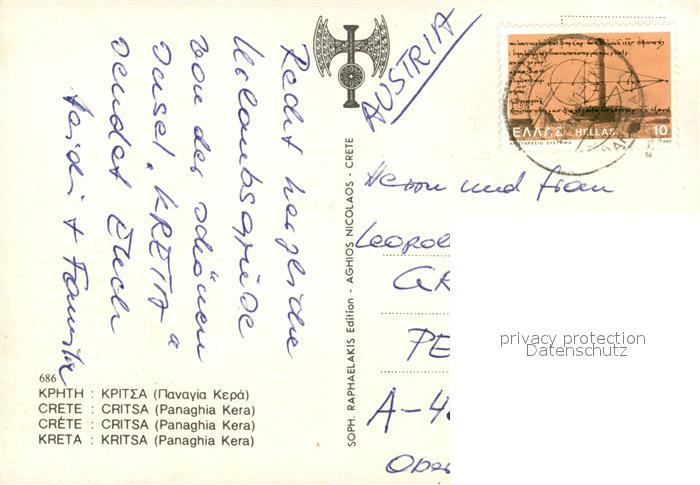 Recht herzliche
Urlaubsgrüße
von der schönen
Insel "KRETA"
sendet Euch
Heidi + Familie
AUSTRIA
ΕΛΛΑΣ HELLAS 10
Herrn und Frau
Leopol
GR
PE
A-4
Obe
privacy protection
Datenschutz
SOPH. RAPHAELAKIS Edition - AGHIOS NICOLAOS - CRETE
686
ΚΡΗΤΗ : ΚΡΙΤΣΑ (Παναγία Κερά)
CRETE : CRITSA (Panaghia Kera)
CRÉTE : CRITSA (Panaghia Kera)
KRETA : KRITSA (Panaghia Kera)